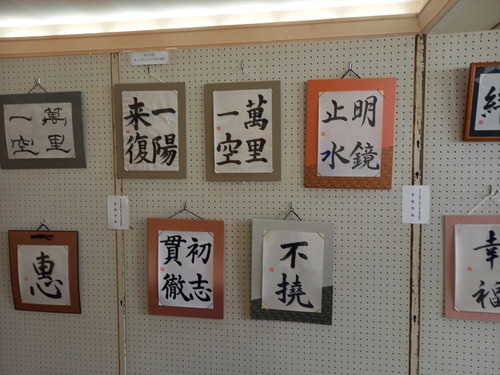 萬里
一空
一陽
来復
萬里
一空
明鏡
止水
惠
初志
貫徹
不撓
幸福